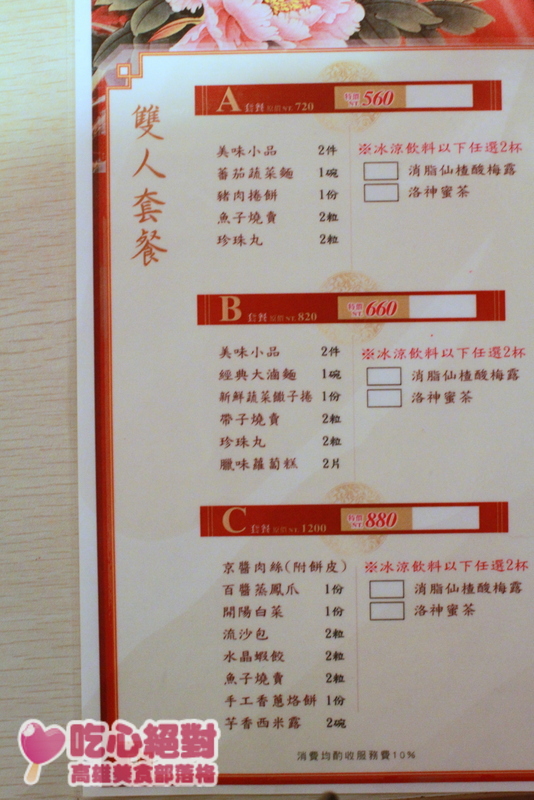 雙人套餐
A 套餐 原價 NT. 720 特價 NT. 560
美味小品 2件
蕃茄蔬菜麵 1碗
豬肉捲餅 1份
魚子燒賣 2粒
珍珠丸 2粒
※冰涼飲料以下任選2杯
消脂仙楂酸梅露
洛神蜜茶
B 套餐 原價 NT. 820 特價 NT. 660
美味小品 2件
經典大滷麵 1碗
新鮮蔬菜橄子捲 1份
帶子燒賣 2粒
珍珠丸 2粒
臘味蘿蔔糕 2片
※冰涼飲料以下任選2杯
消脂仙楂酸梅露
洛神蜜茶
C 套餐 原價 NT. 1200 特價 NT. 880
京醬肉絲(附餅皮)
百醬蒸鳳爪 1份
開陽白菜 1份
流沙包 2粒
水晶蝦餃 2粒
魚子燒賣 2粒
手工香蔥烙餅 1份
芋香西米露 2碗
※冰涼飲料以下任選2杯
消脂仙楂酸梅露
洛神蜜茶
消費均酌收服務費10%
吃心絕對
高雄美食部落格